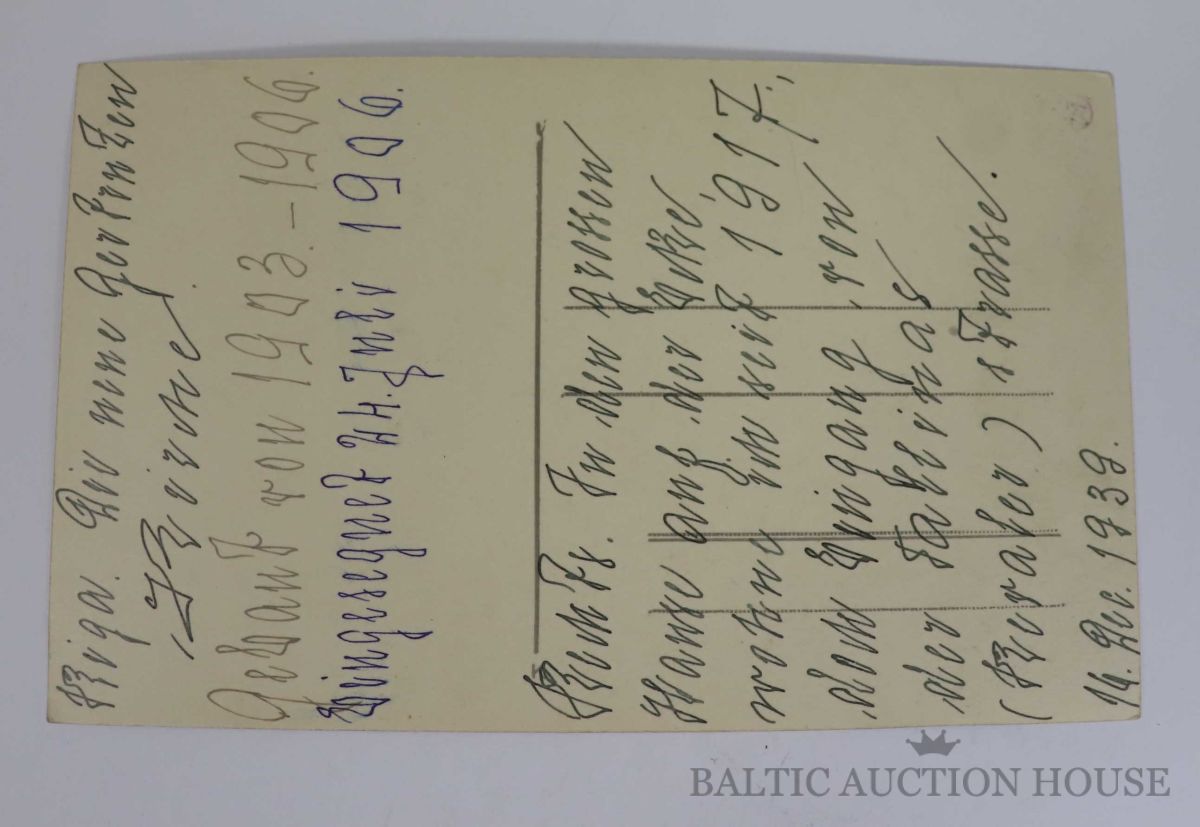 Riga. Die neue Gertruden
Kirche
Gebaut von 1903.–1906.
Eingesegnet 24. Juli 1906.
Rechts. In dem grossen
Hause auf der Ecke,
wohne ich seit 1917.,
dem Eingang von
der Tallinas
(Revaler) strasse.
16. Dec. 1939.
BALTIC AUCTION HOUSE